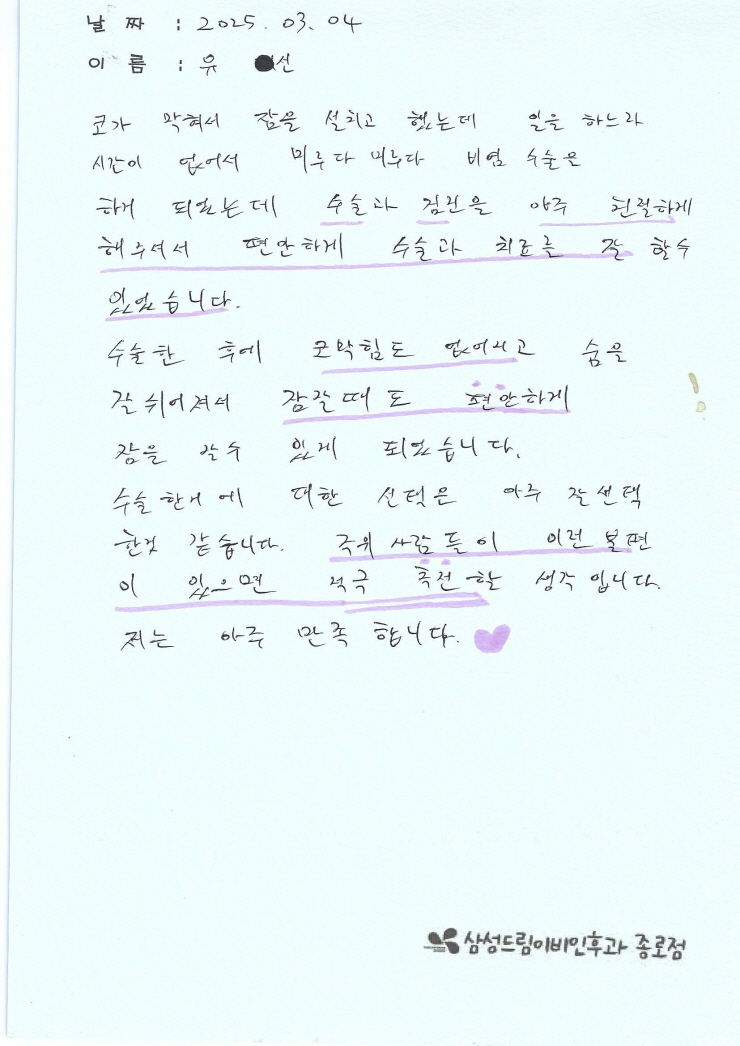 날 짜 : 2025. 03. 04
이 름 : 유 선
코가 막혀서 잠을 설치고 했는데 일을 하느라
시간이 없어서 미루다 미루다 비염 수술은
하게 되었는데 수술과 검진을 아주 친절하게
해주셔서 편안하게 수술과 치료를 잘 할수
있었습니다.
수술한 후에 코막힘도 없어지고 숨을
잘 쉬어져서 잠잘때도 편안하게
잠을 잘수 있게 되었습니다.
수술한거에 대한 선택은 아주 잘선택
한것 같습니다. 주위 사람들이 이런 불편
이 있으면 적극 추천할 생각입니다.
저는 아주 만족 합니다.
삼성드림이비인후과 종로점